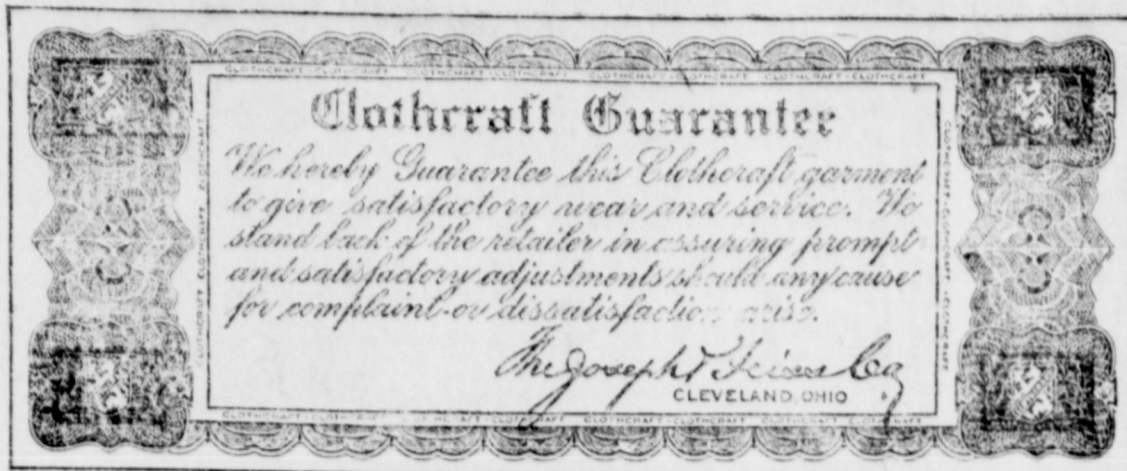 CLOTHCRAFT · CLOTHCRAFT · CLOTHCRAFT · CLOTHCRAFT · CLOTHCRAFT · CLOTHCRAFT · CLOTHCRAFT · CLOTHCRAFT
Clothcraft Guarantee
We hereby Guarantee this Clothcraft garment
to give satisfactory wear and service. We
stand back of the retailer in assuring prompt
and satisfactory adjustments should any cause
for complaint or dissatisfaction arise.
The Joseph & Feiss Co
CLEVELAND, OHIO